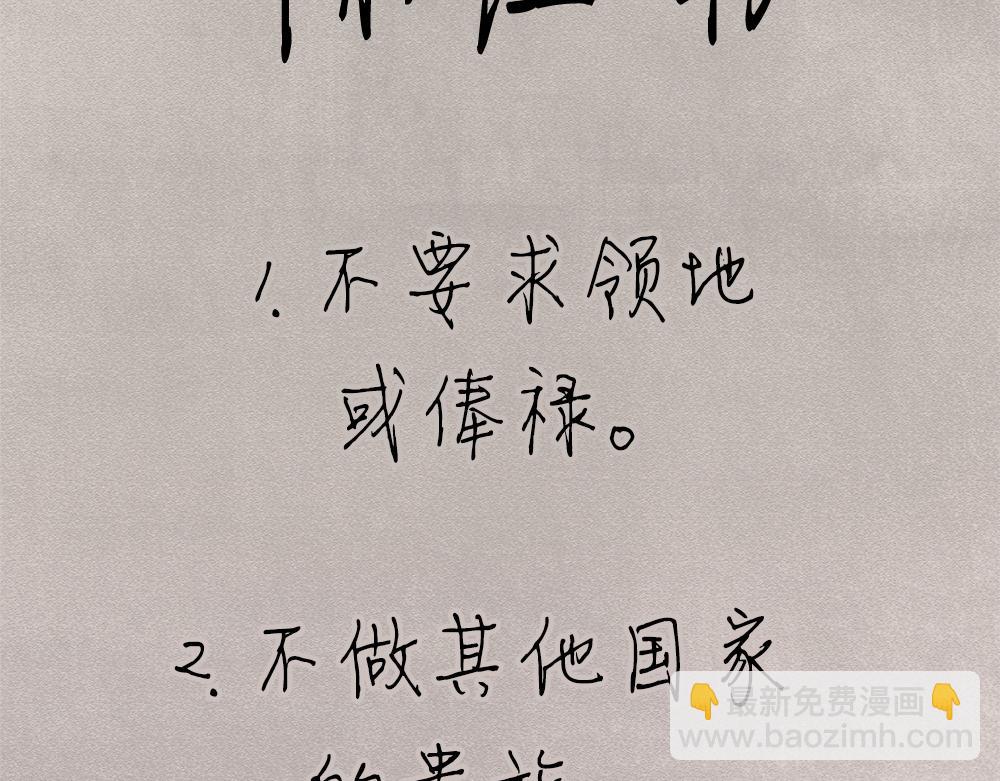 1. 不要求领地
或俸禄。
2. 不做其他国家
的贵族
👇最新免费漫画👇
www.baozimh.com